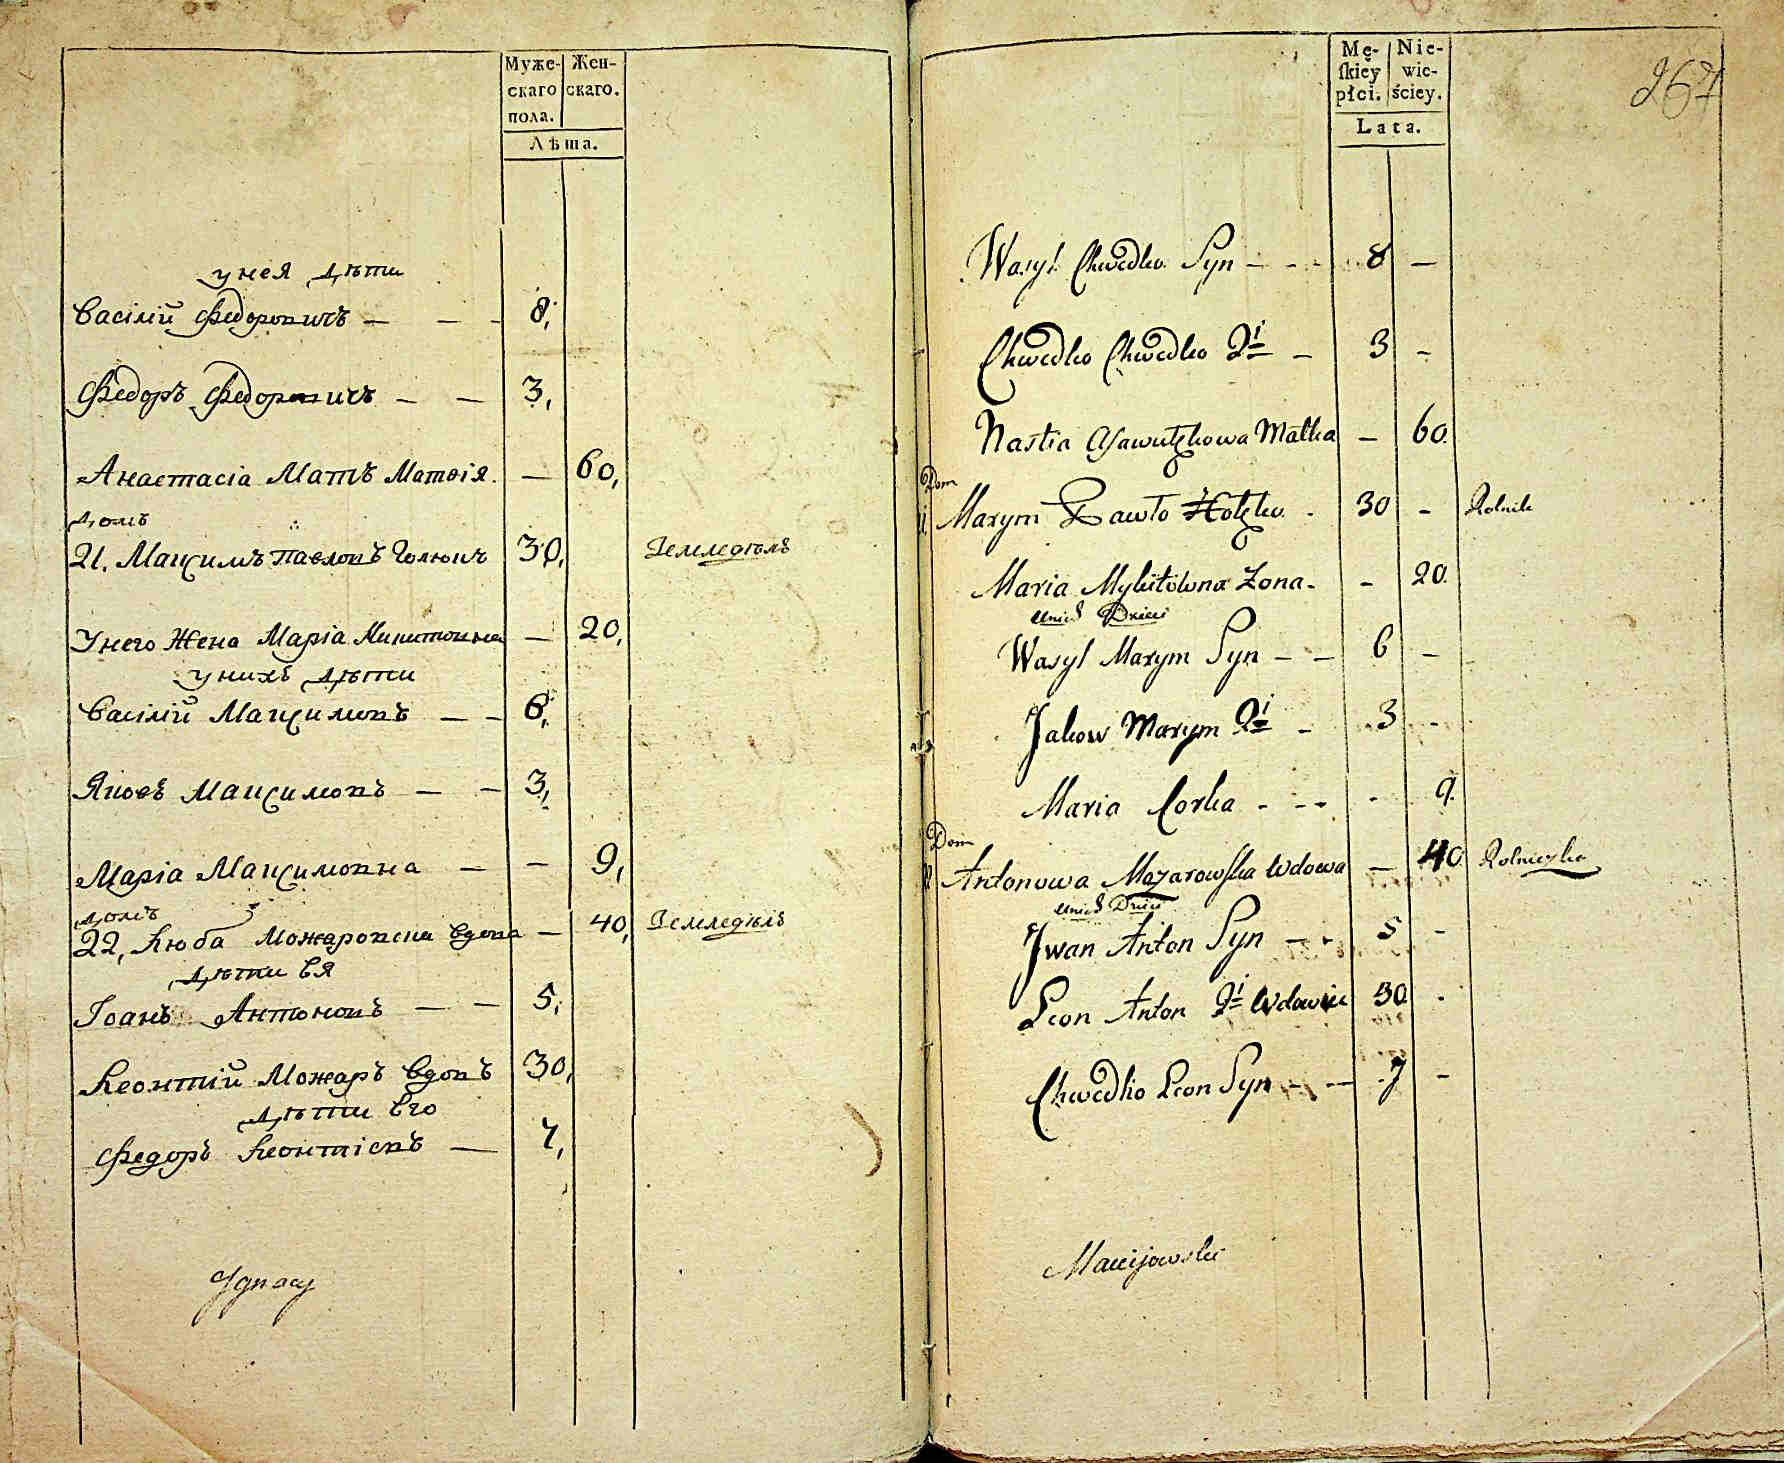 Муже- Жен-
скаго скаго.
пола.
Лѣта.
у нея дѣти
Василій Федоровичъ — — — 8,
Федоръ Федоровичъ — — 3,
Анастасіа Мать Матвія. — 60,
домъ
21. Максимъ Павловъ Голювъ 30, Земледѣлъ
У него Жена Маріа Микитовна — 20,
у нихъ дѣти
Василій Максимовъ — — 6,
Яковъ Максимовъ — — 3,
Маріа Максимовна — — 9,
домъ
22, Люба Можаровски вдова — 40, Земледѣлъ
дѣти Ея
Іоанъ Антоновъ — — 5,
Леонтій Можаръ вдовъ 30,
дѣти Его
Федоръ Леонтіевъ — 7,
Ignacy
Mę- Nie-
skiey wie-
płci. ściey.
Lata.
267
Wasyl Chwedko Syn - - - 8 —
Chwedko Chwedko 2i — 3 -
Nastia Matka — 60
Dom
Maxym Pawło - 30 - Rolnik
Maria Mykitowna Żona - - 20
unich Dzieci
Wasyl Maxym Syn - — 6 —
Jakow Maxym 2i - 3 -
Maria Corka - - - - 9
Dom
Antonowa Mozarowska Wdowa — 40 Rolniczka
unich Dzieci
Jwan Anton Syn - - 5 -
Leon Anton 2i Wdowiec 30 -
Chwedko Leon Syn - — 7 -
Maciijowski